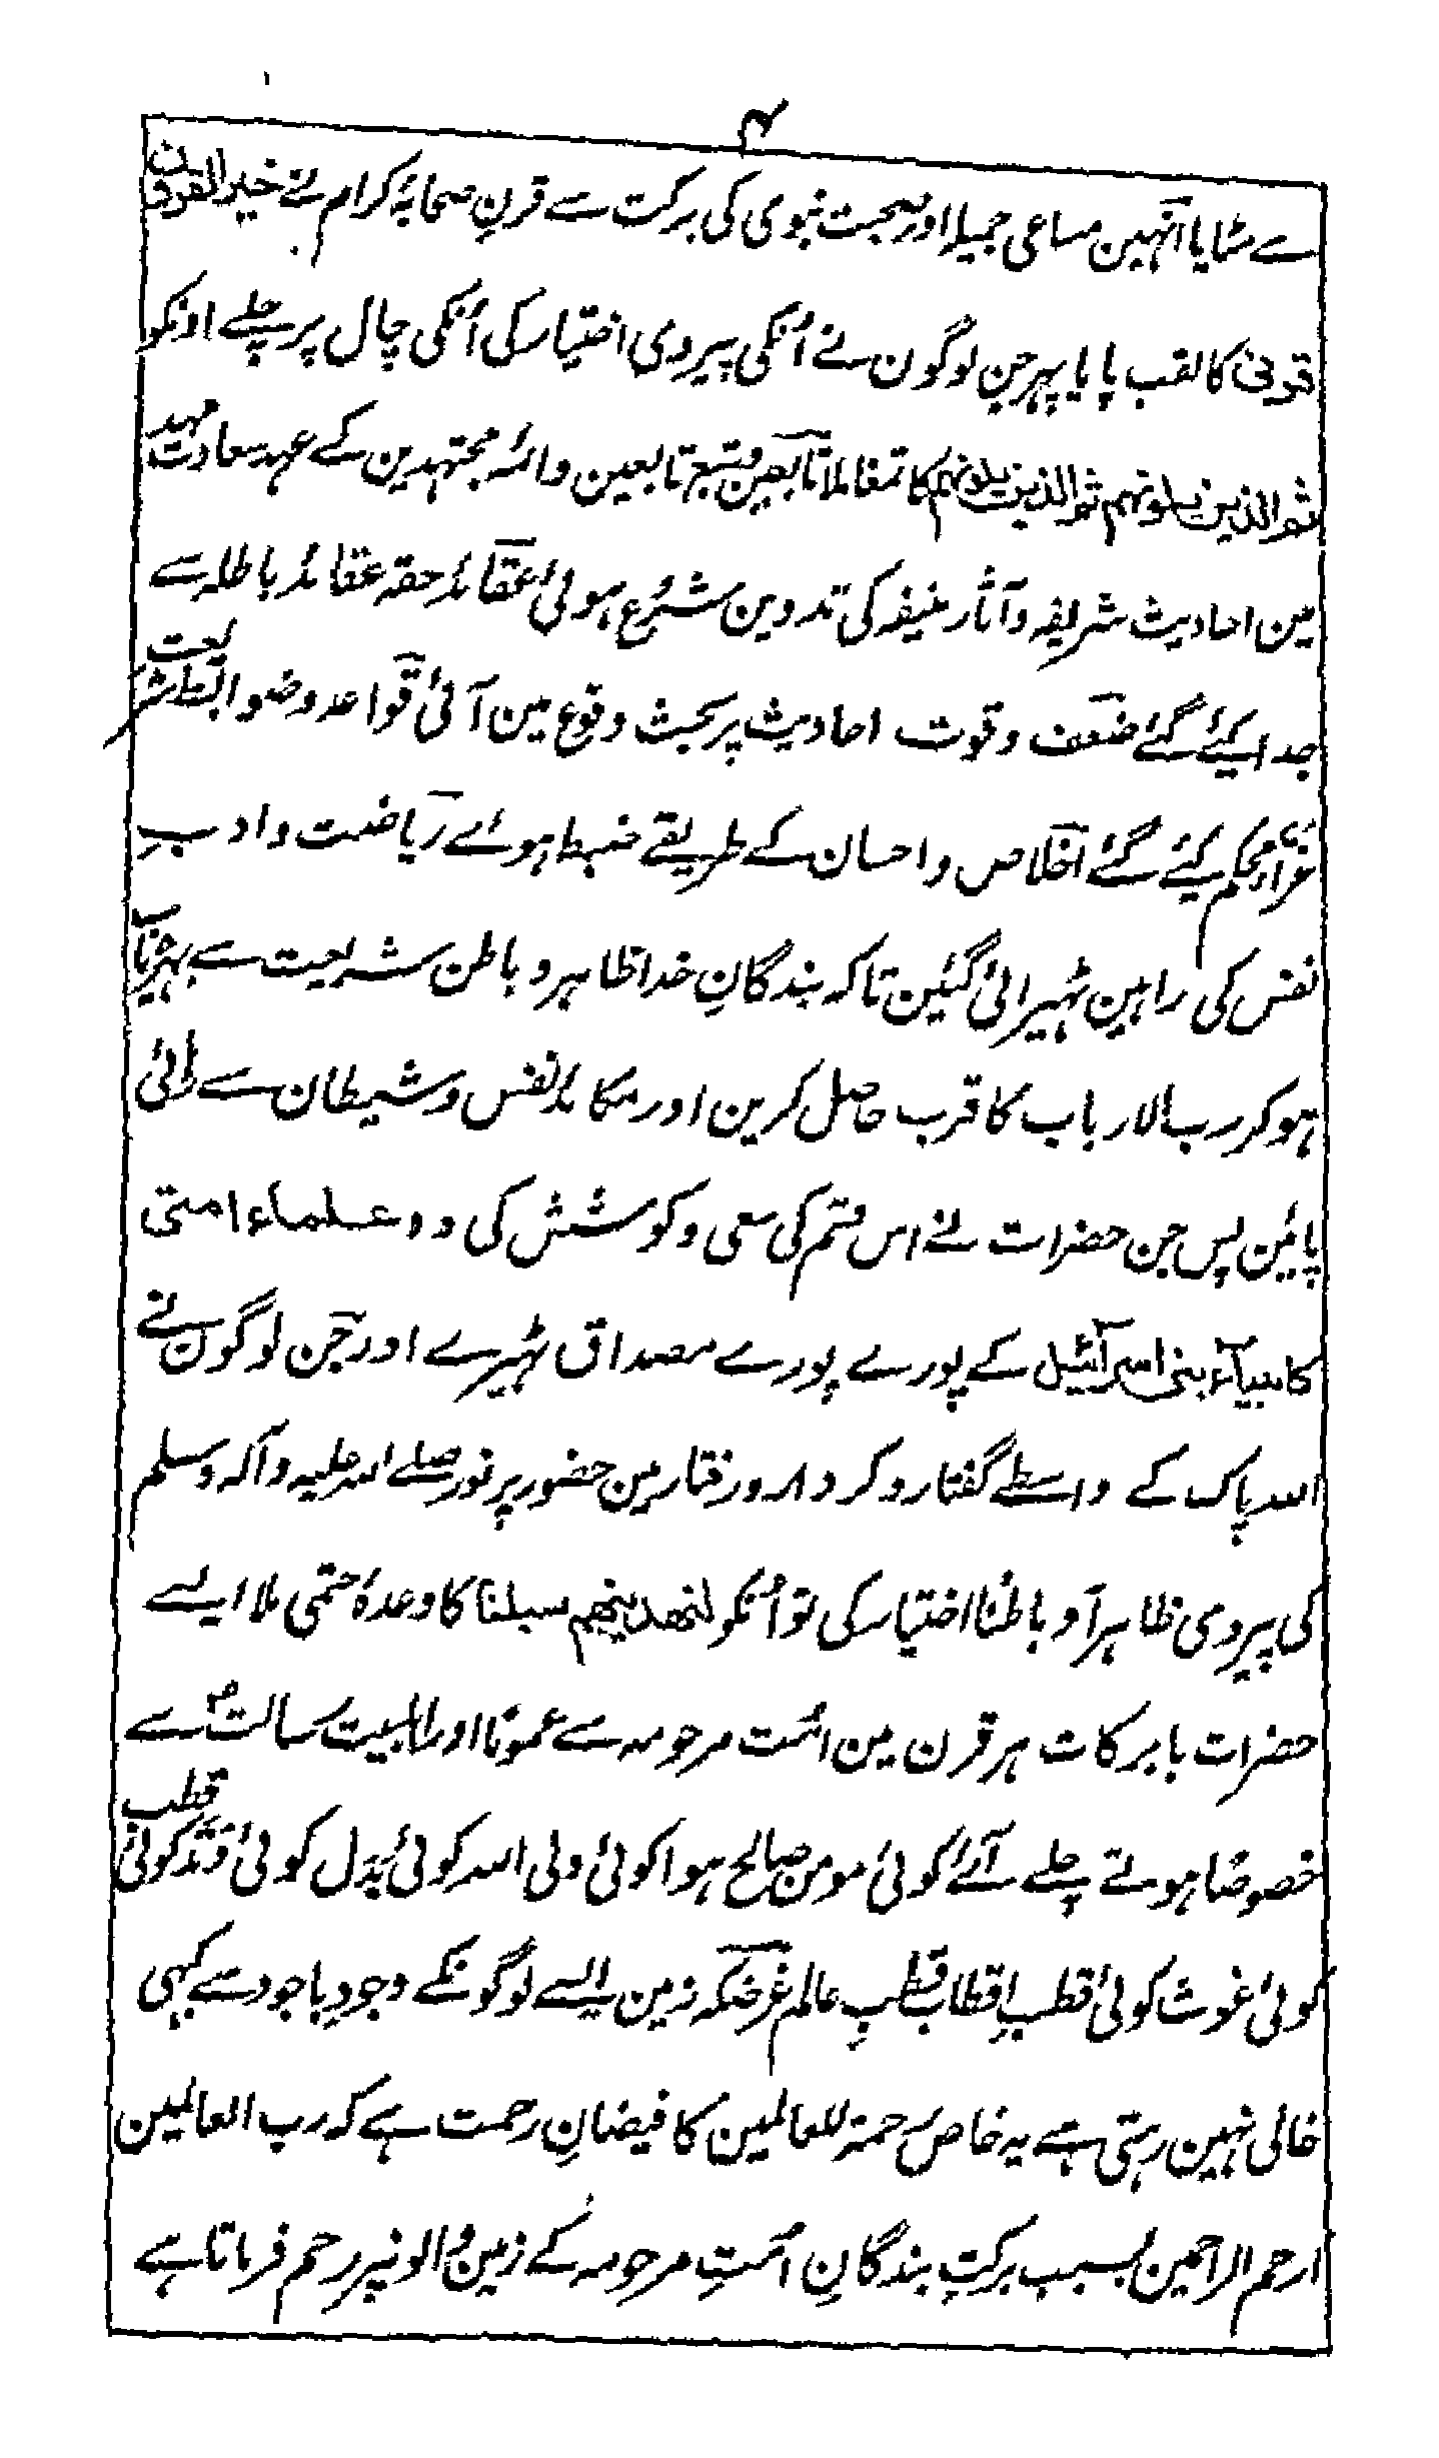 ۴
سے مٹایا انہین مساعی جمیلہ اور صحبت نبوی کی برکت سے قرنِ صحابۂ کرام نے خیر القرون
قرنی کا لقب پایا پہر جن لوگون نے اُنکی پیروی اختیار کی اُنکی چال پر چلے اونکو
ثم الذین یلونہم ثم الذین یلونہم کا تمغا ملا تابعین و تبع تابعین و ائمہ مجتہدین کے عہد سعادت مہد
مین احادیث شریفہ و آثار منیفہ کی تدوین شروع ہوئی عقائد حقہ عقائد باطلہ سے
جدا کیئے گئے ضعف و قوت احادیث پر بحث وقوع مین آئی قواعد و ضوابط شریعت
غرا محکم کیئے گئے اخلاص و احسان کے طریقے ضبط ہوئے ریاضت و ادبِ
نفس کی راہین ٹہیرائی گئین تاکہ بندگانِ خدا ظاہر و باطن شریعت سے بہرہ یاب
ہو کر رب الارباب کا قرب حاصل کرین اور مکائد نفس و شیطان سے رہائی
پائین پس جن حضرات نے اس قسم کی سعی و کوشش کی وہ علماء امتی
کانبیاء بنی اسرائیل کے پورے پورے مصداق ٹہیرے اور جن لوگون نے
اللہ پاک کے واسطے گفتار و کردار و رفتار مین حضور پر نور صلے اللہ علیہ وآلہ وسلم
کی پیروی ظاہراً و باطنًا اختیار کی تو اُنکو لنھدینھم سبلنا کا وعدۂ حتمی ملا ایسے
حضرات بابرکات ہر قرن مین امت مرحومہ سے عمومًا اور اہلبیت رسالتؐ سے
خصوصًا ہوتے چلے آئے کوئی مومن صالح ہوا کوئی ولی اللہ کوئی بدل کوئی وتد کوئی قطب
کوئی غوث کوئی قطبِ اقطاب قطبِ عالم غرضکہ زمین ایسے لوگونکے وجودِ باجود سے کبہی
خالی نہین رہتی ہے یہ خاص رحمۃ للعالمین کا فیضانِ رحمت ہے کہ رب العالمین
ارحم الراحمین بسبب برکتِ بندگانِ امتِ مرحومہ کے زمین والونپر رحم فرماتا ہے